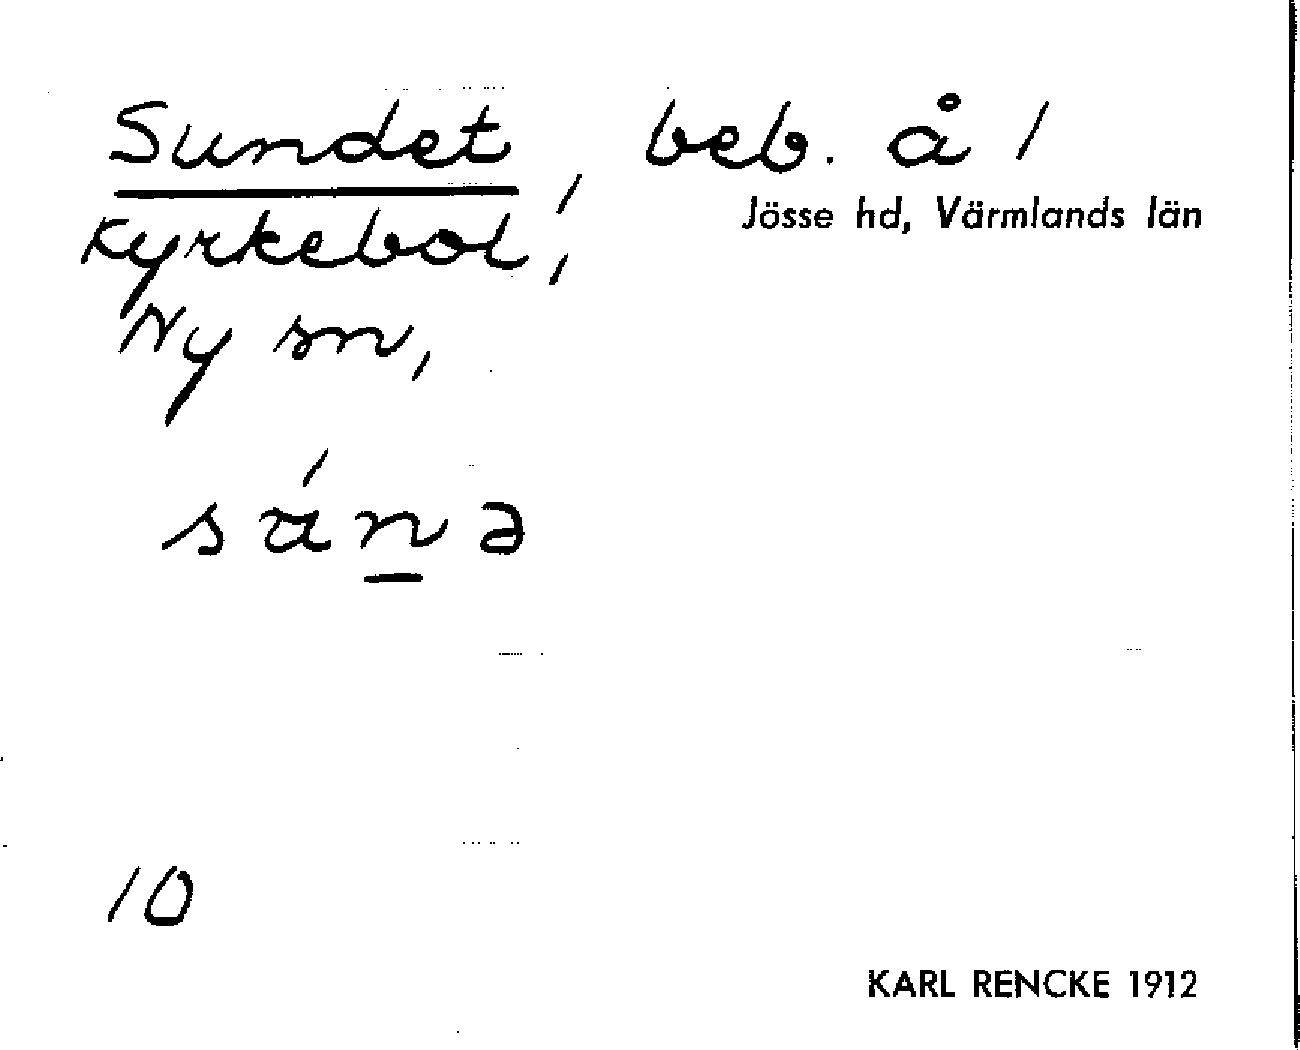 Sundet, beb. å 1
Jösse hd, Värmlands län
Kyrkebol,
Ny sn,
10
KARL RENCKE 1912